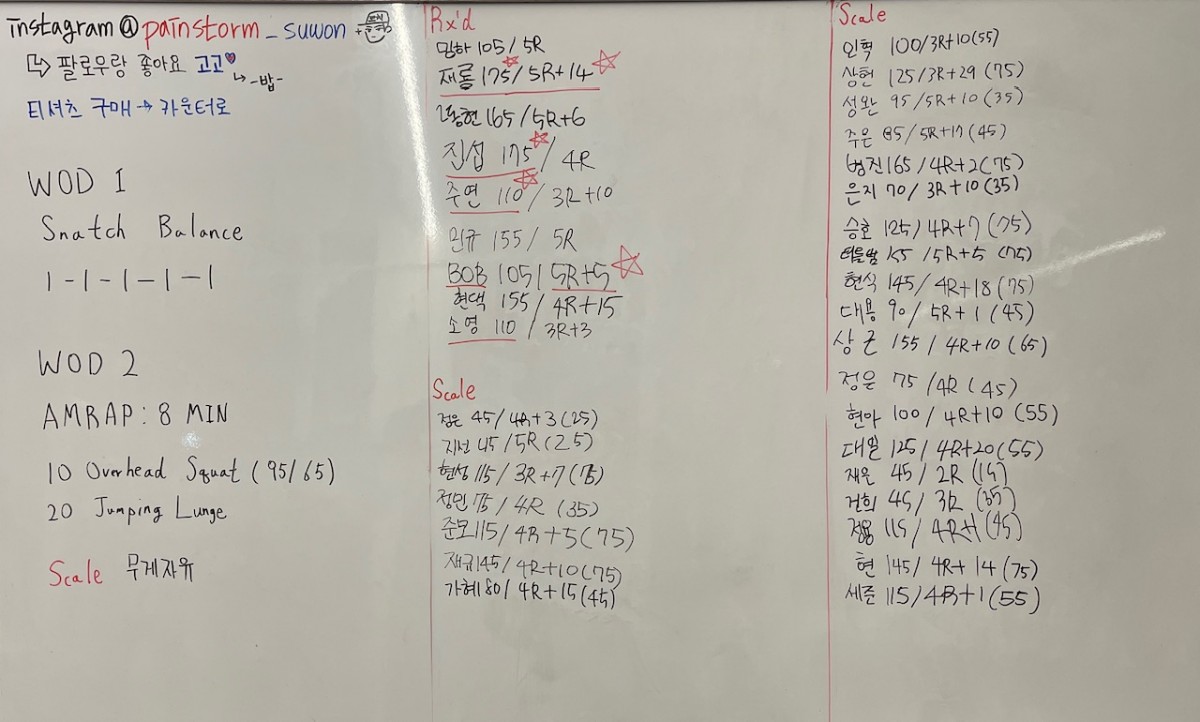 instagram@painstorm_suwon
팔로우랑 좋아요 고고
-밥-
티셔츠 구매 → 카운터로
WOD 1
Snatch Balance
1-1-1-1-1
WOD 2
AMRAP: 8 MIN
10 Overhead Squat (95/65)
20 Jumping Lunge
Scale 무게자유
Rx'd
민하 105/5R
재롱 175/5R+14
동현 165/5R+6
진섭 175/4R
주연 110/3R+10
민규 155/5R
BOB 105/5R+5
현택 155/4R+15
소영 110/3R+3
Scale
정은 45/4R+3(25)
지선 45/5R(25)
현성 115/3R+7(75)
정민 75/4R(35)
준모 115/4R+5(75)
재규 145/4R+10(75)
가혜 80/4R+15(45)
Scale
인혁 100/3R+10(55)
상헌 125/3R+29(75)
성완 95/5R+10(35)
주은 85/5R+17(45)
병진 165/4R+2(75)
은지 70/3R+10(35)
승호 125/4R+7(75)
/5R+5(75)
현식 145/4R+18(75)
대용 90/5R+1(45)
상근 155/4R+10(65)
정은 75/4R(45)
현아 100/4R+10(55)
대일 125/4R+20(55)
재은 45/2R(15)
건희 45/3R(35)
정용 115/4R+1(45)
현 145/4R+14(75)
세준 115/4R+1(55)